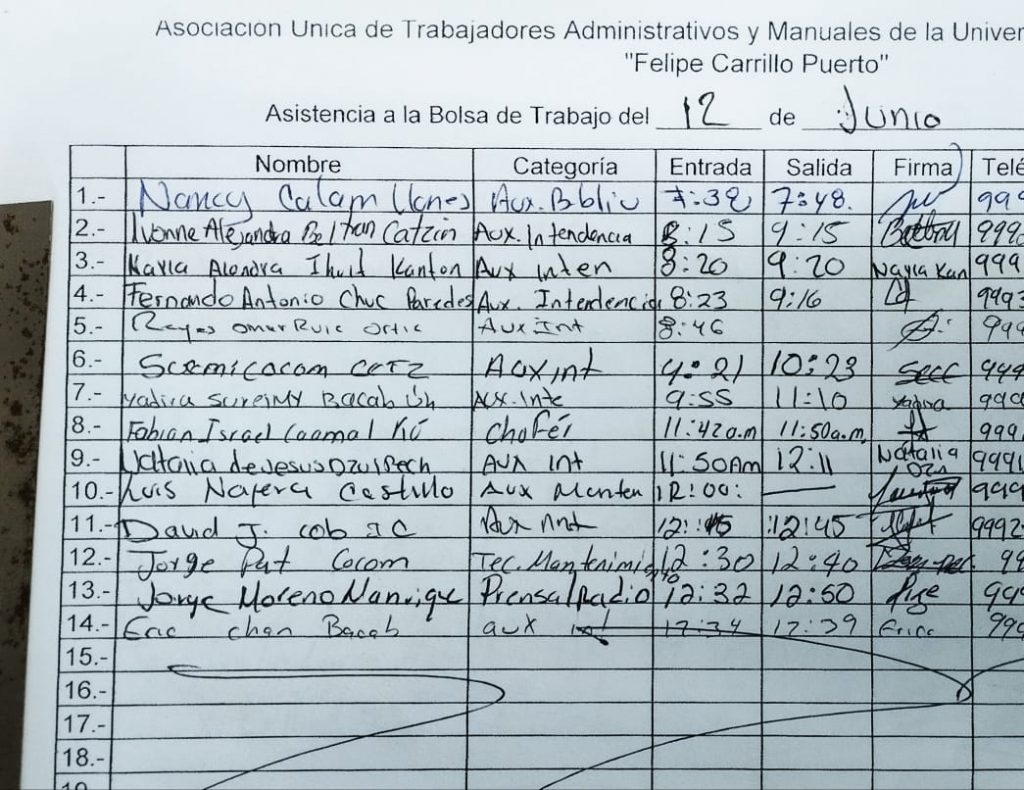 Asociación Unica de Trabajadores Administrativos y Manuales de la Univer
"Felipe Carrillo Puerto"
Asistencia a la Bolsa de Trabajo del 12 de Junio
Nombre Categoría Entrada Salida Firma Telé
1.- Nancy Calam Aux. Bbliu 7:38 7:48. 999
2.- Ivonne Alejandra Beltran Catzin Aux. Intendencia 8:15 9:15 999
3.- Alondra Kanton Aux Inten 8:20 9:20 Nayla Kan 999
4.- Fernando Antonio Chuc Paredes Aux. Intendencia 8:23 9:16 999
5.- Reyes Omar Ruiz Ortiz Aux Int 8:46 999
6.- Aux int 9:21 10:23 999
7.- Yadira Sureimy Bacab Aux. Inte 9:55 11:10 Yadira 999
8.- Fabian Israel Caamal Kú Chofér 11:42a.m 11:50a.m. 999
9.- Natalia de Jesus Dzul Pech Aux Int 11:50Am 12:11 Natalia 9991
10.- Luis Najera Castillo Aux Manten 12:00: 999
11.- David J. Cob Aux Int 12:15 :12:45 9992
12.- Jorge Pat Cocom Tec. Mantenimi 12:30 12:40 99
13.- Jorge Moreno Manrique Prensa/Radio 12:32 12:50 999
14.- Eric chan Bacab aux int 12:34 12:39 Eric 999
15.-
16.-
17.-
18.-